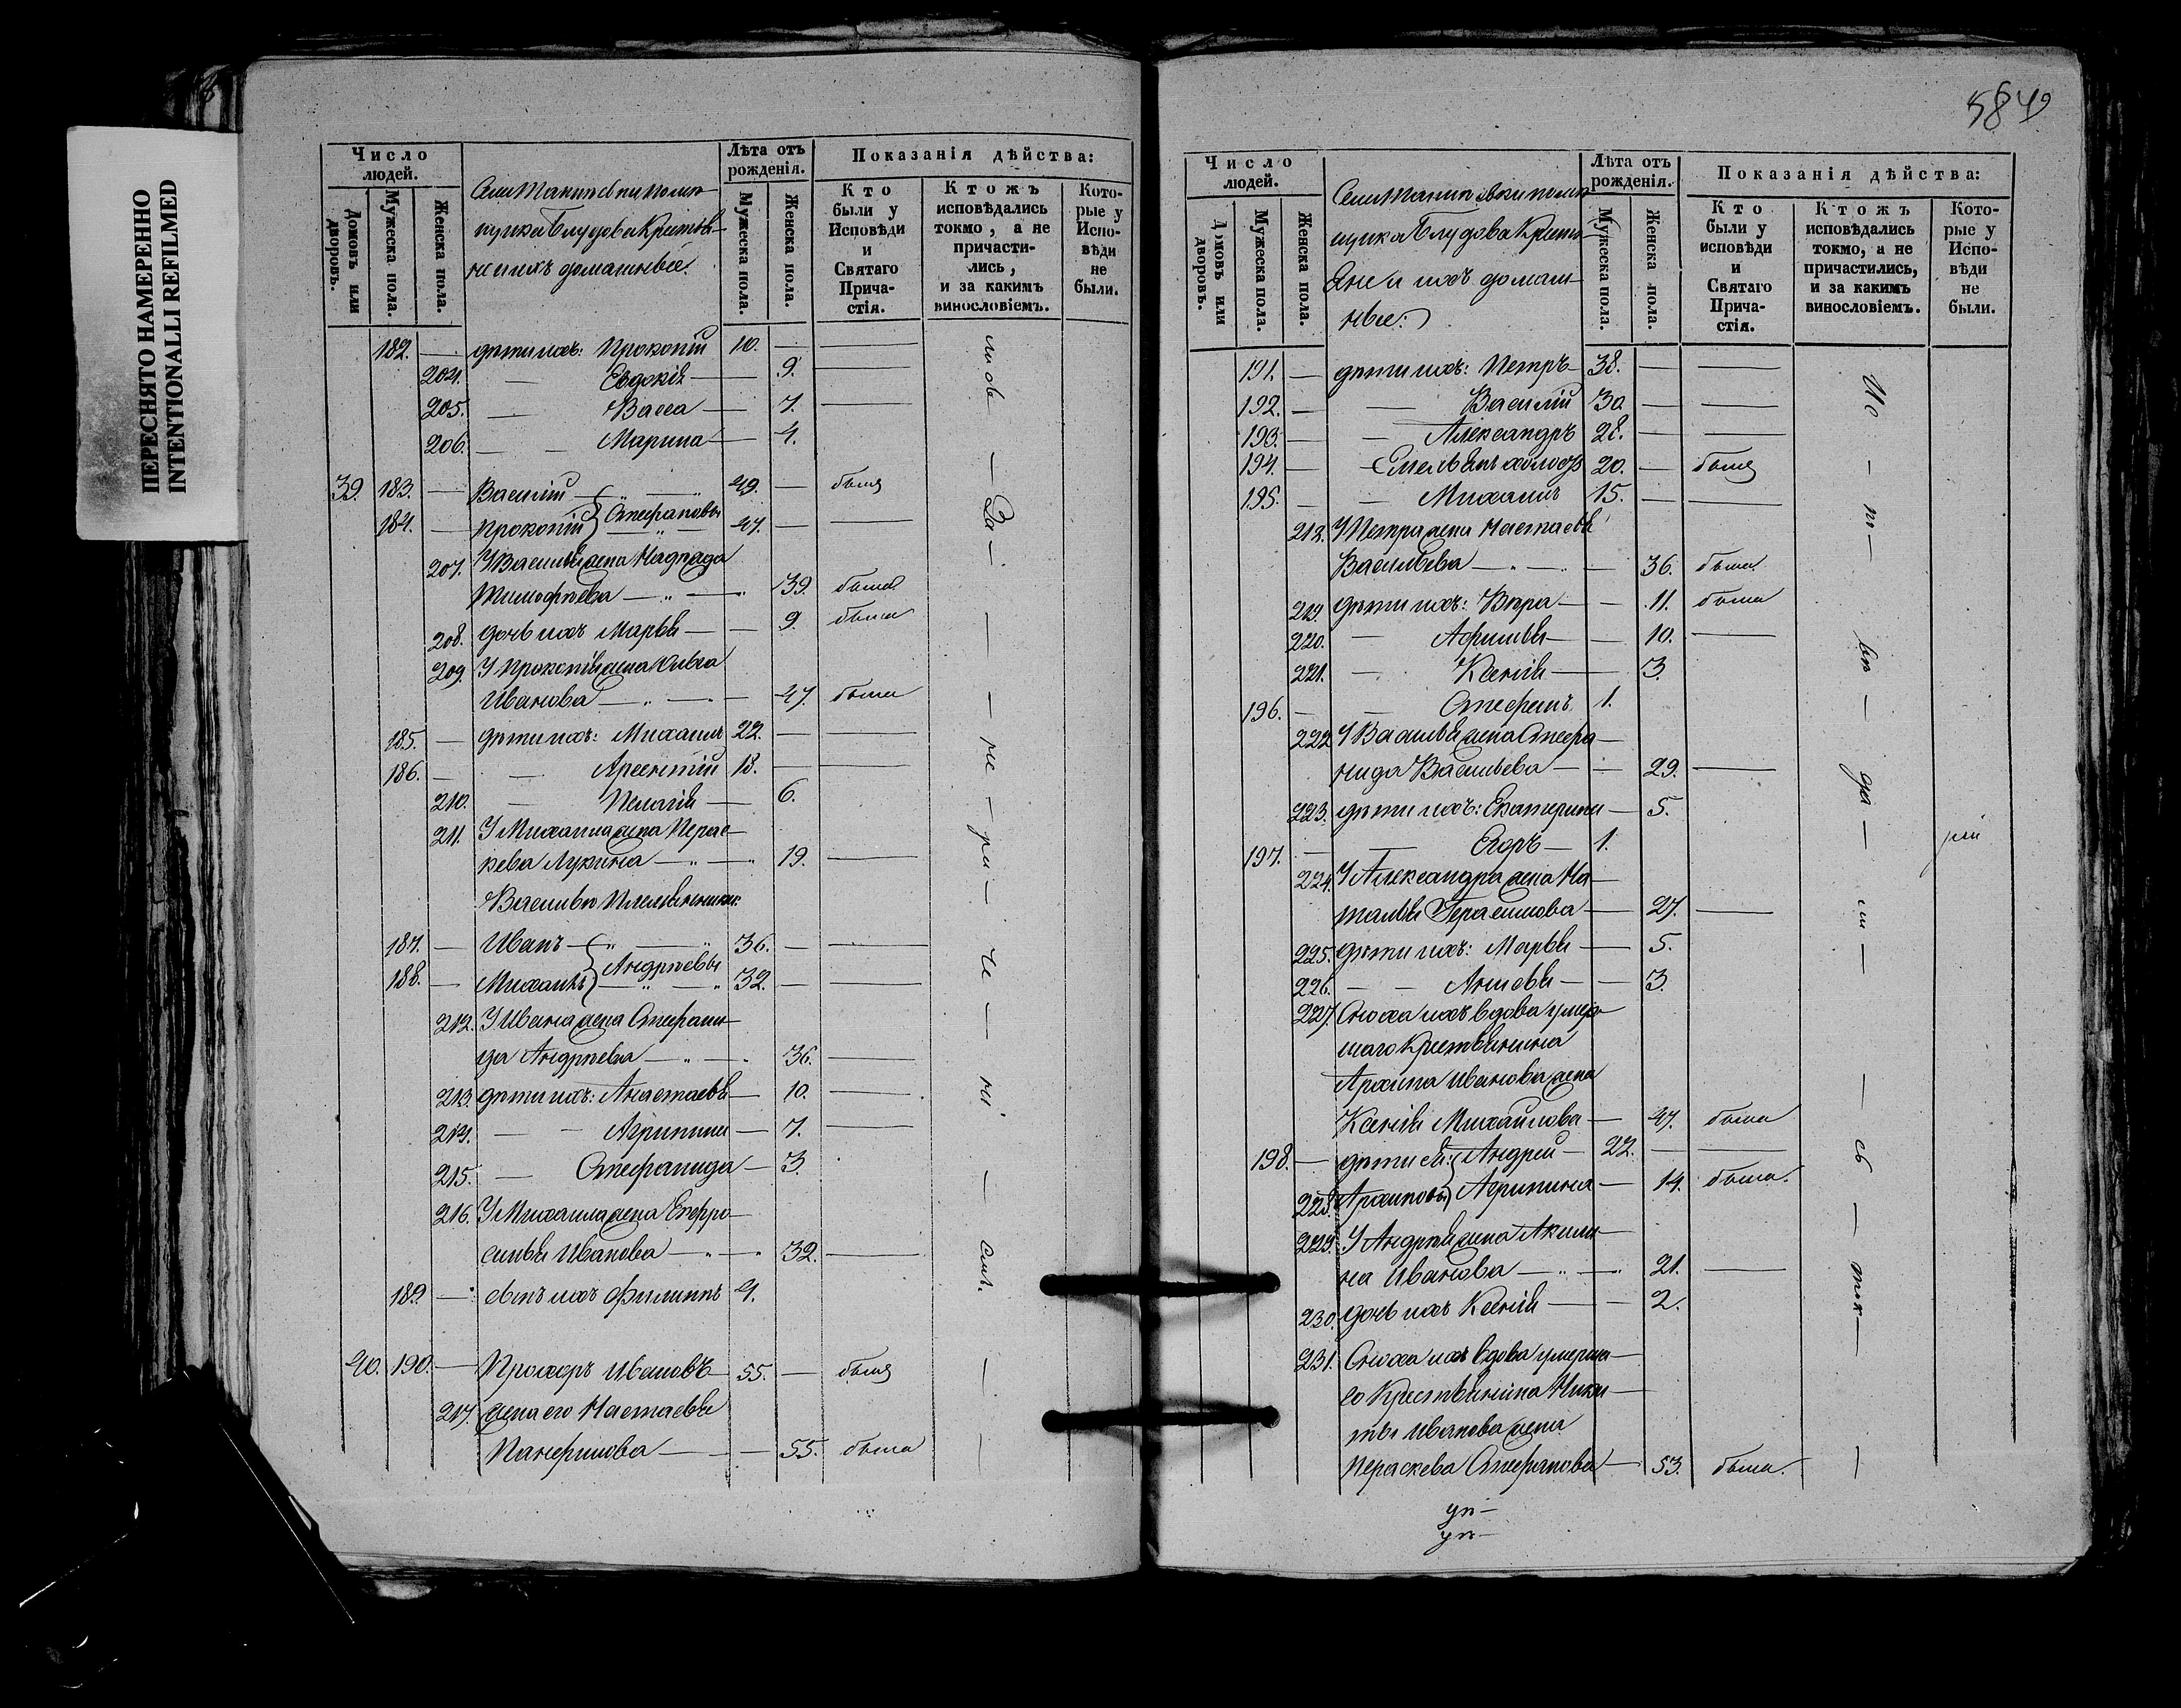 ПЕРЕСНЯТО НАМЕРЕННО
INTENTIONALLI REFILMED
Число людей.
Домовъ или дворовъ.
Мужеска пола.
Женска пола.
Лѣта отъ рожденія.
Мужеска пола.
Женска пола.
Показанія дѣйства:
Кто были у Исповѣди и Святаго Прича-стія.
Ктожъ исповѣдались токмо, а не причасти-лись, и за какимъ винословіемъ.
Кото-рые у Испо-вѣди не были.
домашнѣе.
182. — дѣти ихъ: Прокопій 10. —
204. — Евдокія — 9.
205. — Васса — 7.
206. — Марина — 4.
39. 183. — Василій 49. — былъ
184. — Прокопій } Стефановы 47. —
207. У Василья жена Надежда
Тимофѣева — 39. была
208. дочь ихъ Марья — 9. была
209. У Прокопія жена
Иванова — 47. была
185. — дѣти ихъ: Михаилъ 22. —
186. — Арсентій 18. —
210. — Пелагія — 6.
211. У Михаила жена Парас-
кева Лукина — 19.
Васильѣ племянники:
187. — Иванъ 36. —
188. — Михаилъ } Андрѣевы 32. —
212. У Ивана жена Стефани-
да Андрѣева — 36.
213. дѣти ихъ: Анастасія — 10.
214. — Агрипина — 7.
215. — Стефанида — 3.
216. У Михаила жена Евфро-
синья Иванова — 32.
189. — сынъ ихъ Филиппъ 4.
40. 190. — Прохоръ Ивановъ 55. — былъ
217. жена его Настасья
Панфилова — 55. была
За — не — ри — че — ні — емъ.
5849
Число людей.
Домовъ или дворовъ.
Мужеска пола.
Женска пола.
Лѣта отъ рожденія.
Мужеска пола.
Женска пола.
Показанія дѣйства:
Кто были у исповѣди и Святаго Прича-стія.
Ктожъ исповѣдались токмо, а не причастились, и за какимъ винословіемъ.
Кото-рые у Испо-вѣди не были.
191. — дѣти ихъ: Петръ 38. —
192. — Василій 30. —
193. — Александръ 28. —
194. — Емельянъ холостъ 20. — былъ
195. — Михаилъ 15. —
218. У Петра жена Настасья
Васильева — 36. была
219. дѣти ихъ: Вѣра — 11. была
220. — Афимья — 10.
221. — Ксенія — 3.
196. — Стефанъ 1.
222. У Василья жена Стефа-
нида Васильева — 29.
223. дѣти ихъ: Екатерина — 5.
197. — Егоръ — 1.
224. У Александра жена На-
талья Герасимова — 27.
225. дѣти ихъ: Марья — 5.
226. — Анисья — 3.
227. Сноха ихъ вдова умер-
шаго крестьянина
Архипа Иванова жена
Ксенія Михайлова — 47. была
198. — дѣти ея: } Андрей — 22. —
228. Архиповы } Агрипина — 14. была.
229. У Андрея жена Акили-
на Иванова — 21.
230. дочь ихъ Ксенія — 2.
231. Сноха ихъ вдова умерша-
го крестьянина Ники-
ты Иванова жена
Параскева Стефанова — 53. была.